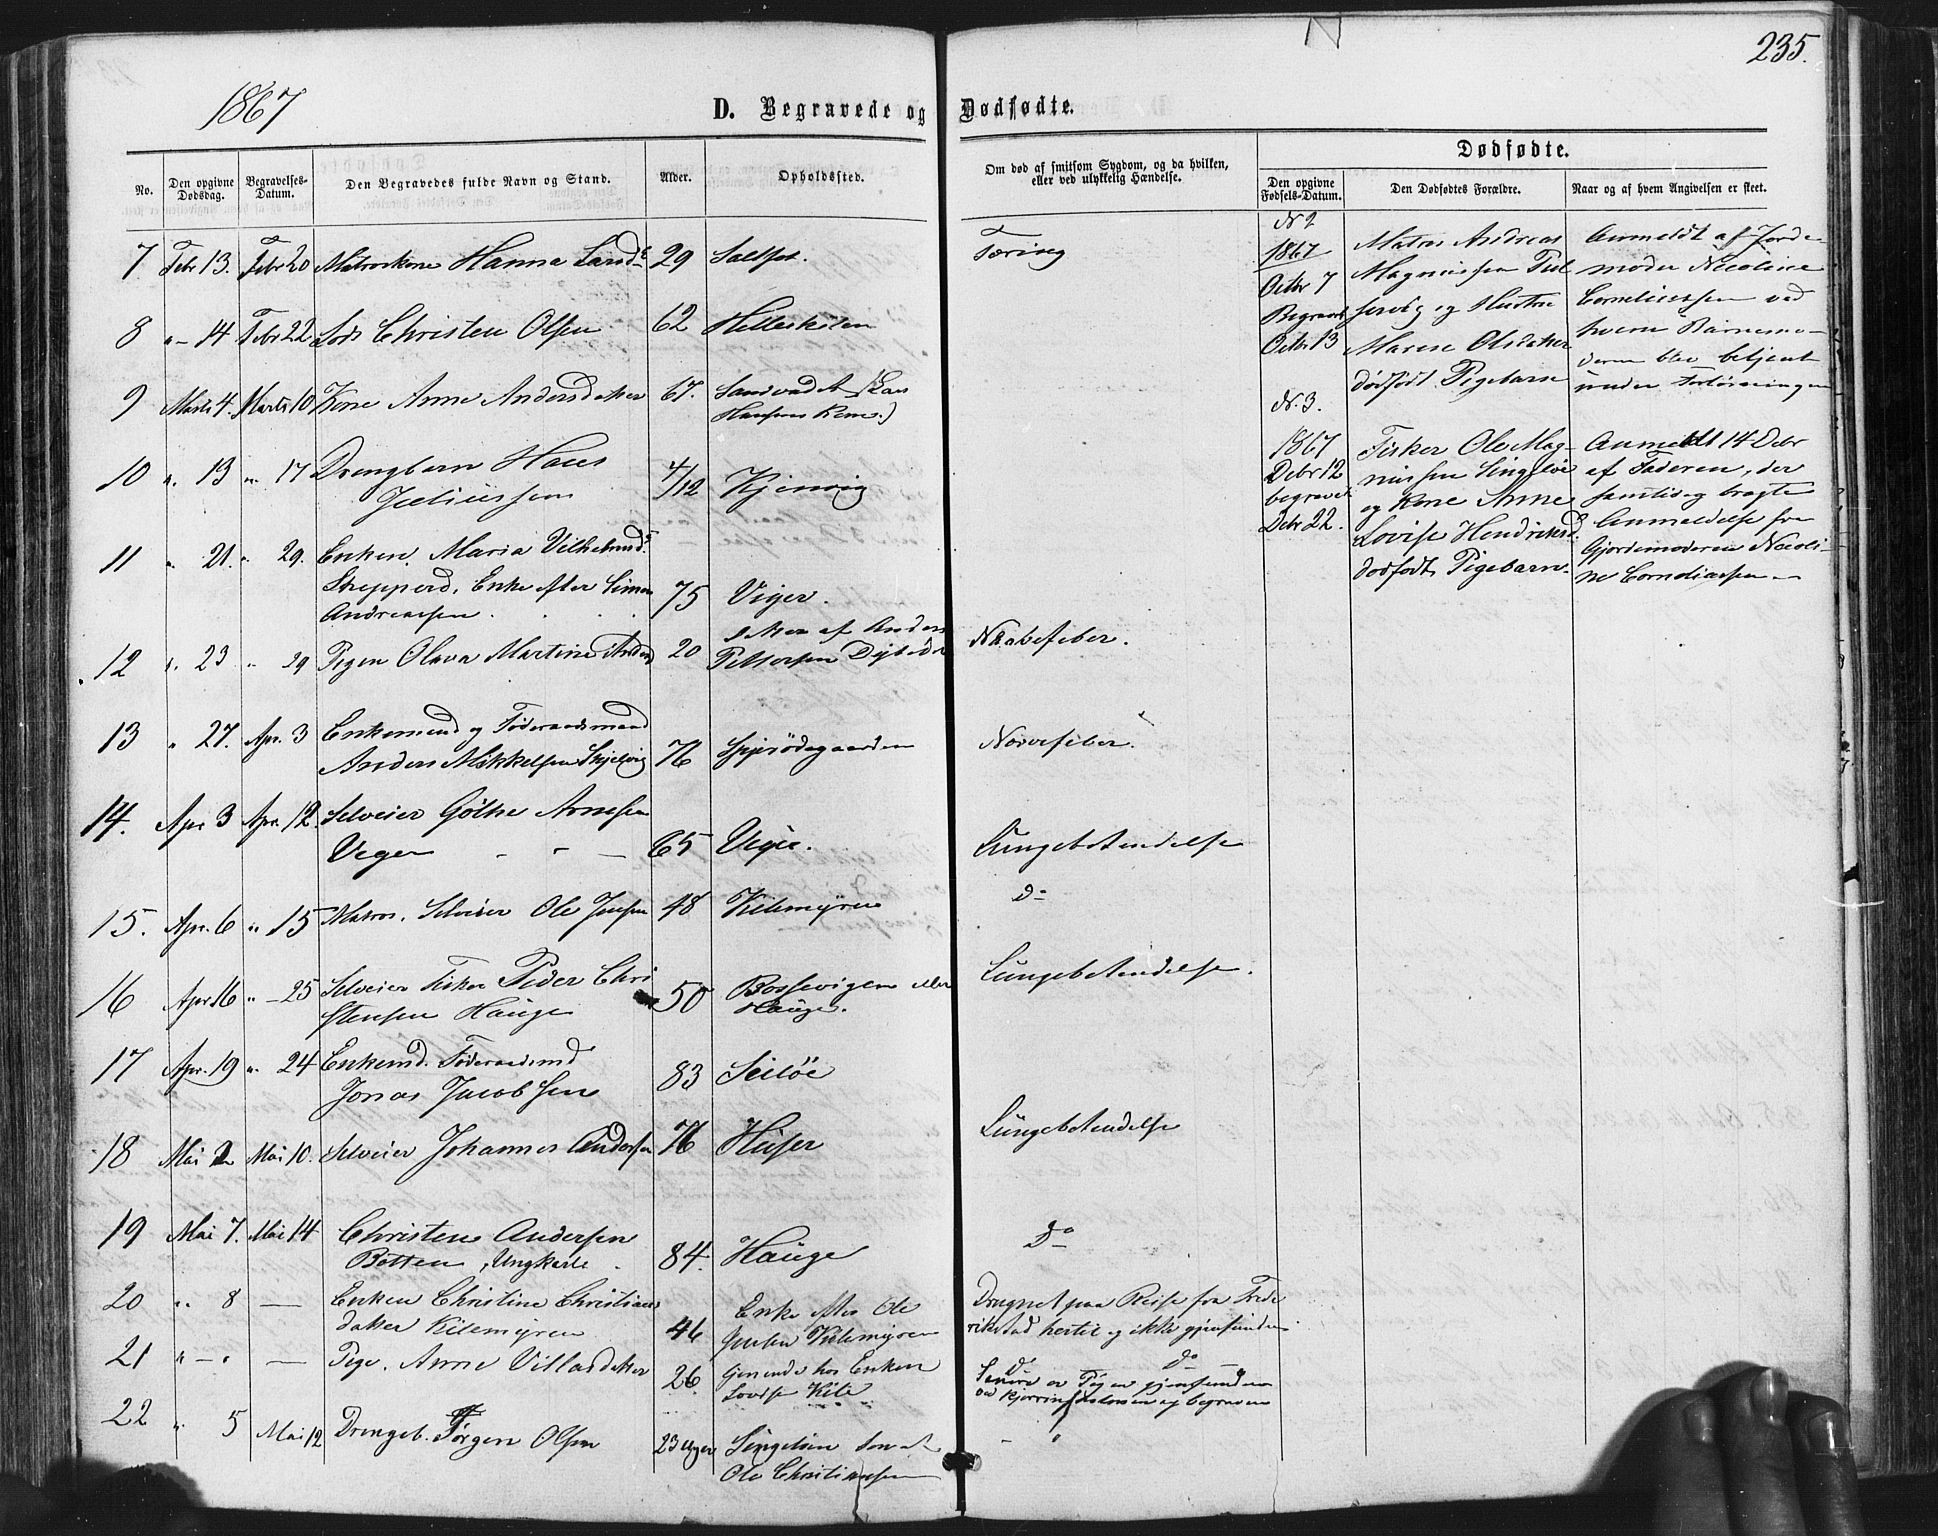 235.
1867
D. Begravede og Dødfødte.
No.
Den opgivne Dødsdag.
Begravelses-Datum.
Den Begravedes fulde Navn og Stand.
Alder.
Opholdssted.
Om død af smitsom Sygdom, og da hvilken, eller ved ulykkelig Hændelse.
Dødfødte.
Den opgivne Fødsels-Datum.
Den Dødfødtes Forældre.
Naar og af hvem Angivelsen er skeet.
7 Febr 13. Febr 20 Matroskone Hanna Larsd 29 Tæring
8 " - 14 Febr 22 Lods Christen Olsen 62 Helleskilen
9 Marts 4. Marts 10 Kone Anne Andersdatter 67. Sandvadet (Lars
Hansens Kone.)
10 ". 13 " 17 Drengbarn Hans
Juliussen 4/12 Kjenvig
11 " 21. " 29. Enken. Maria Vilhelmsd
Skepperd. Enke efter Simon
Andreassen. 75 Viger.
12 ". 23 " 29 Pigen Olava Martine Andersd 20 datter af Anders
Pettersen Dybedal
13 " 27. Apr. 3 Enkemand og Føderaadsmand
Anders Mikkelsen Skjelvig 76 Nervefeber.
14. Apr 3 Apr. 12. Selveier Gölke Arnesen
Veger - " - 65 Veger. Lungebetændelse
15. Apr. 6 " 15 Matros. Selveier Ole Jensen 48 Kilemyren Do
16 Apr 16 " - 25 Selveier Fisker Peder Chri
stensen Hauge 50 Bossevigen eller
Hauge. Lungebetændelse.
17 Apr. 19 ". 24 Enkemd. Føderaadsmd
Jonas Jacobsen 83 Seiløe
18 Mai 2 Mai 10. Selveier Johannes Andersen 76 Huser Lungebetændelse
19 Mai 7. Mai 14 Christen Andersen
Botten, Ungkarle. 84. Hauge Do
20 ". 8 — Enken Christine Christians
datter Kilemyren 46 Enke efter Ole
Jensen Kilemyren Drugnet paa Reise fra Frede
rikstad hertil og ikke gjenfunden.
21 " - . — Pige. Anne Villasdatter 26. tjenende hos Enken
Lovise Kile Do Do
Senere er Pigen gjenfunden
og begraven
22 " 5 Mai 12 Drengeb. Jørgen Olsen 23 Uger Singeløen Søn af
Ole Christiansen
N 2
1867
Octbr 7
Begravet
Octbr 13
Matros Andreas
Magnussen
og Hustru
Maren Olsdatter
dødfødt Pigebarn
Anmeldt af Jorde-
moder Nicoline
Corneliussen ved
hvem Barnemo-
deren blev betjent
under Forløsningen
N. 3.
1867
Debr 12
begravet
Debr 22.
Fisker Ole Mag-
nussen Singeløe
og Kone Anne
Lovise Hendriksd
dødfødt Pigebarn.
Anmeldt 14 Debr
af Faderen, der
samtidig bragte
Anmeldelse fra
Gjordemoderen Nicoli-
ne Corneliussen -